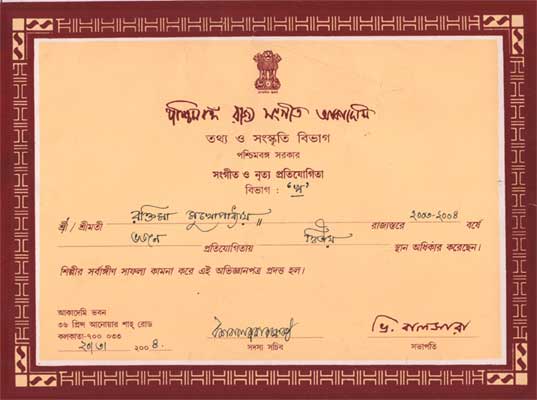 পশ্চিমবঙ্গ রাজ্য সংগীত আকাদেমি
তথ্য ও সংস্কৃতি বিভাগ
পশ্চিমবঙ্গ সরকার
সংগীত ও নৃত্য প্রতিযোগিতা
বিভাগ : ‘খ’
শ্রী / শ্রীমতী রক্তিমা মুখোপাধ্যায় ॥ রাজ্যস্তরে ২০০৩-২০০৪ বর্ষে
ভজন প্রতিযোগিতায় দ্বিতীয় স্থান অধিকার করেছেন।
শিল্পীর সর্বাঙ্গীণ সাফল্য কামনা করে এই অভিজ্ঞানপত্র প্রদত্ত হল।
আকাদেমি ভবন
৩৬ প্রিন্স আনোয়ার শাহ্ রোড
কলকাতা-৭০০ ০৩৩
২০০৪
সদস্য সচিব
ভি. বালসারা
সভাপতি